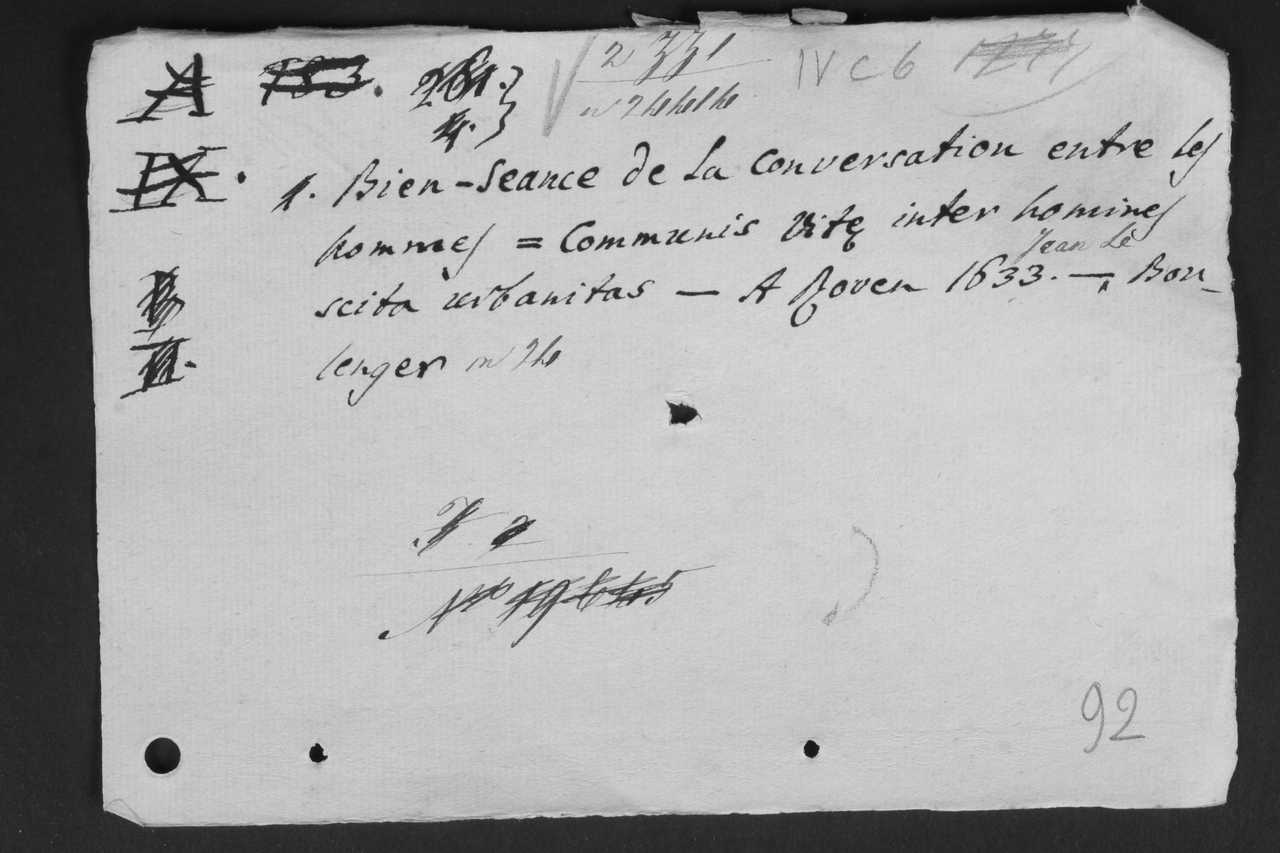 A 153. 261. } 2 331 IV C 6
4. }
IX. 1. Bien-Seance de La Conversation entre les
hommes = Communis Vitę inter homines
scita urbanitas — A Roven 1633. — Jean Le Bou-
lenger in 24
II.
N°
92